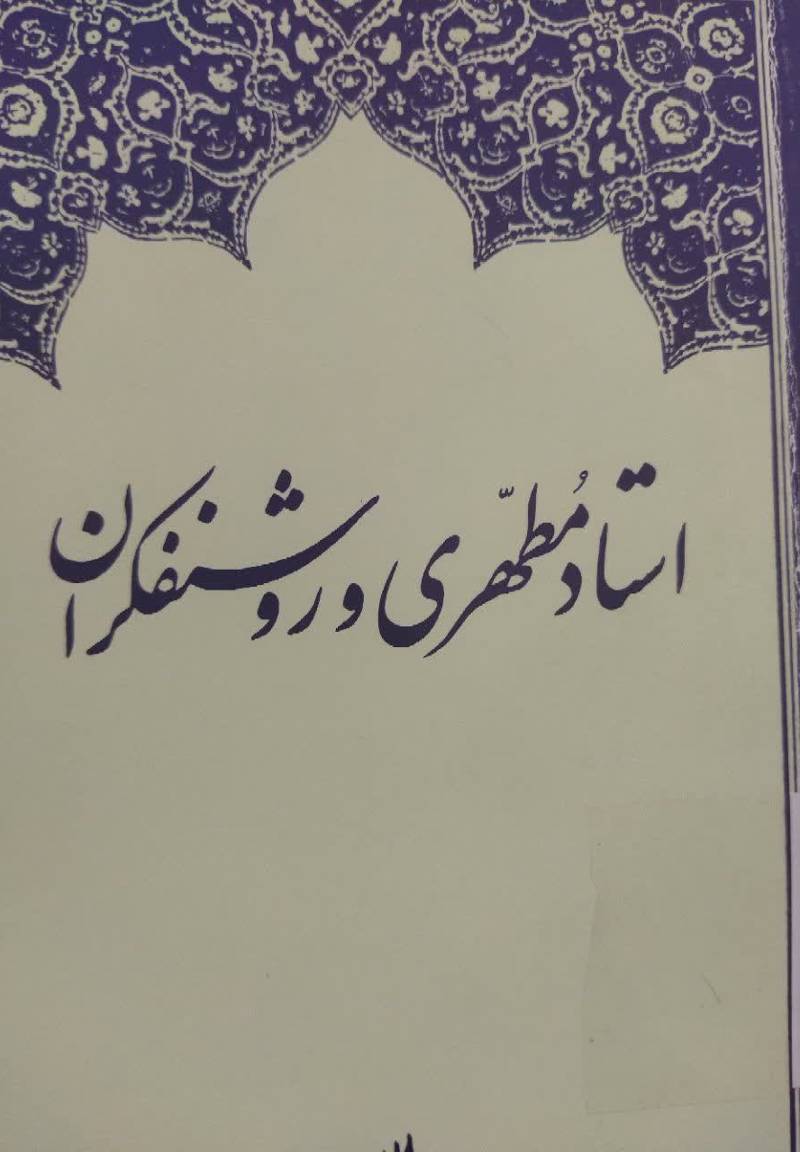 استاد مُطهّری و روشنفکران